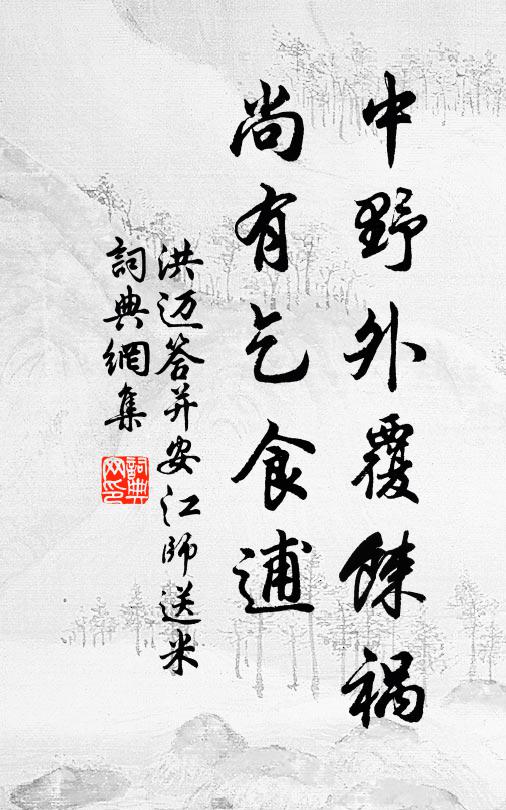 中野外覆餗禍
尚有乞食逋
洪迈答并安江師送米
詞典網集
詞典网印